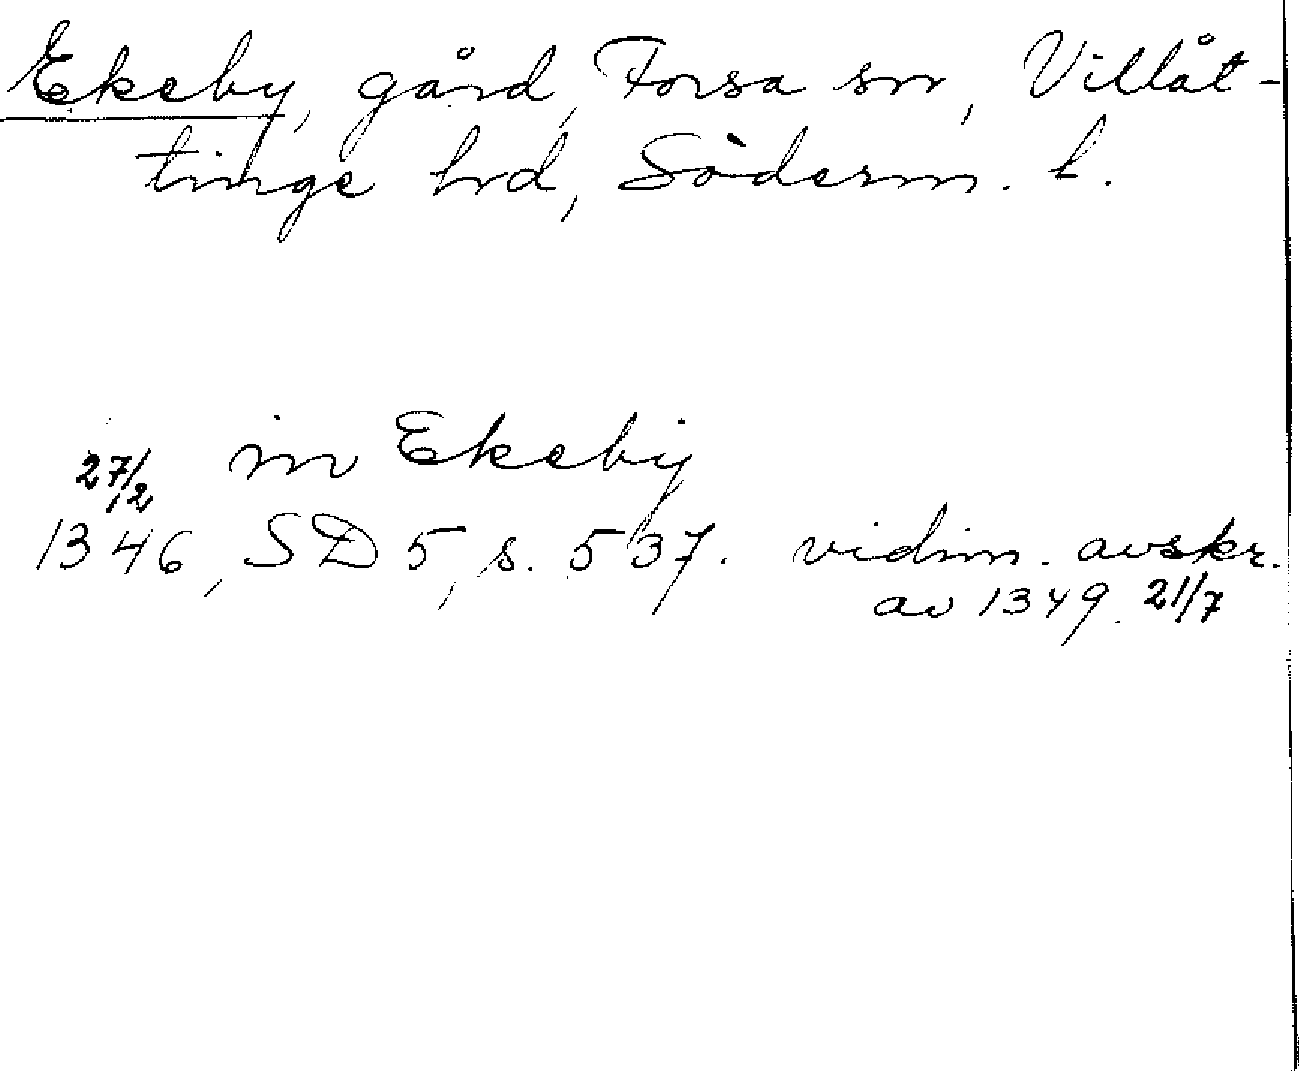 Ekeby, gård, Forsa sn, Villåt-
tinge hd, Söderm. l.
in Ekeby
27/2
1346, SD 5, s. 537. vidim. avskr.
av 1349. 21/7